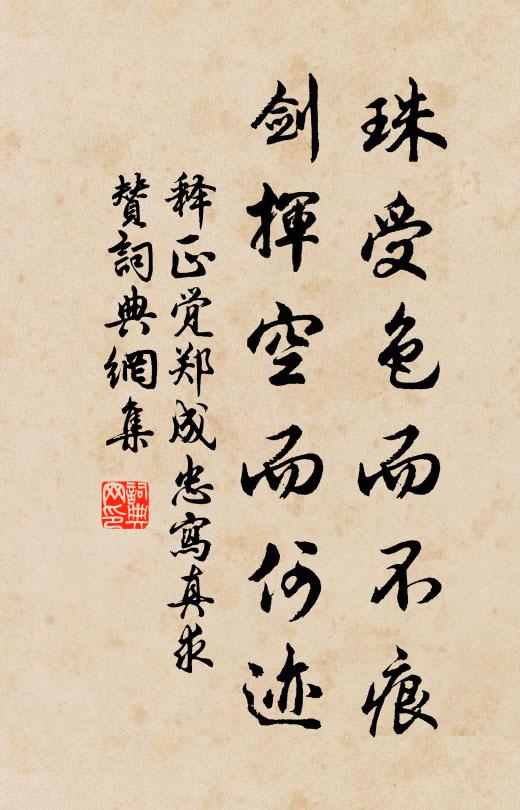 珠受色而不痕
剑挥空而何迹
释正觉郑成忠寫真求
贊詞典網集
詞典
网印